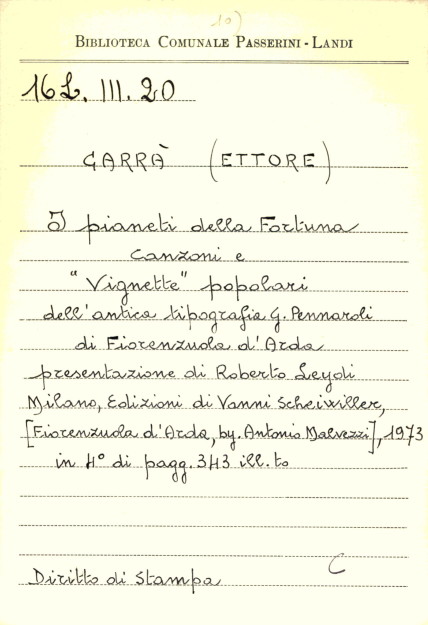 10)
BIBLIOTECA COMUNALE PASSERINI - LANDI
16L. III. 20
GARRÀ (ETTORE)
I pianeti della Fortuna
Canzoni e
"Vignette" popolari
dell'antica tipografia G. Pennaroli
di Fiorenzuola d'Arda
presentazione di Roberto Leydi
Milano, Edizioni di Vanni Scheiwiller,
[Fiorenzuola d'Arda, by. Antonio Malvezzi], 1973
in 4° di pagg. 343 ill.to
C
Diritto di Stampa